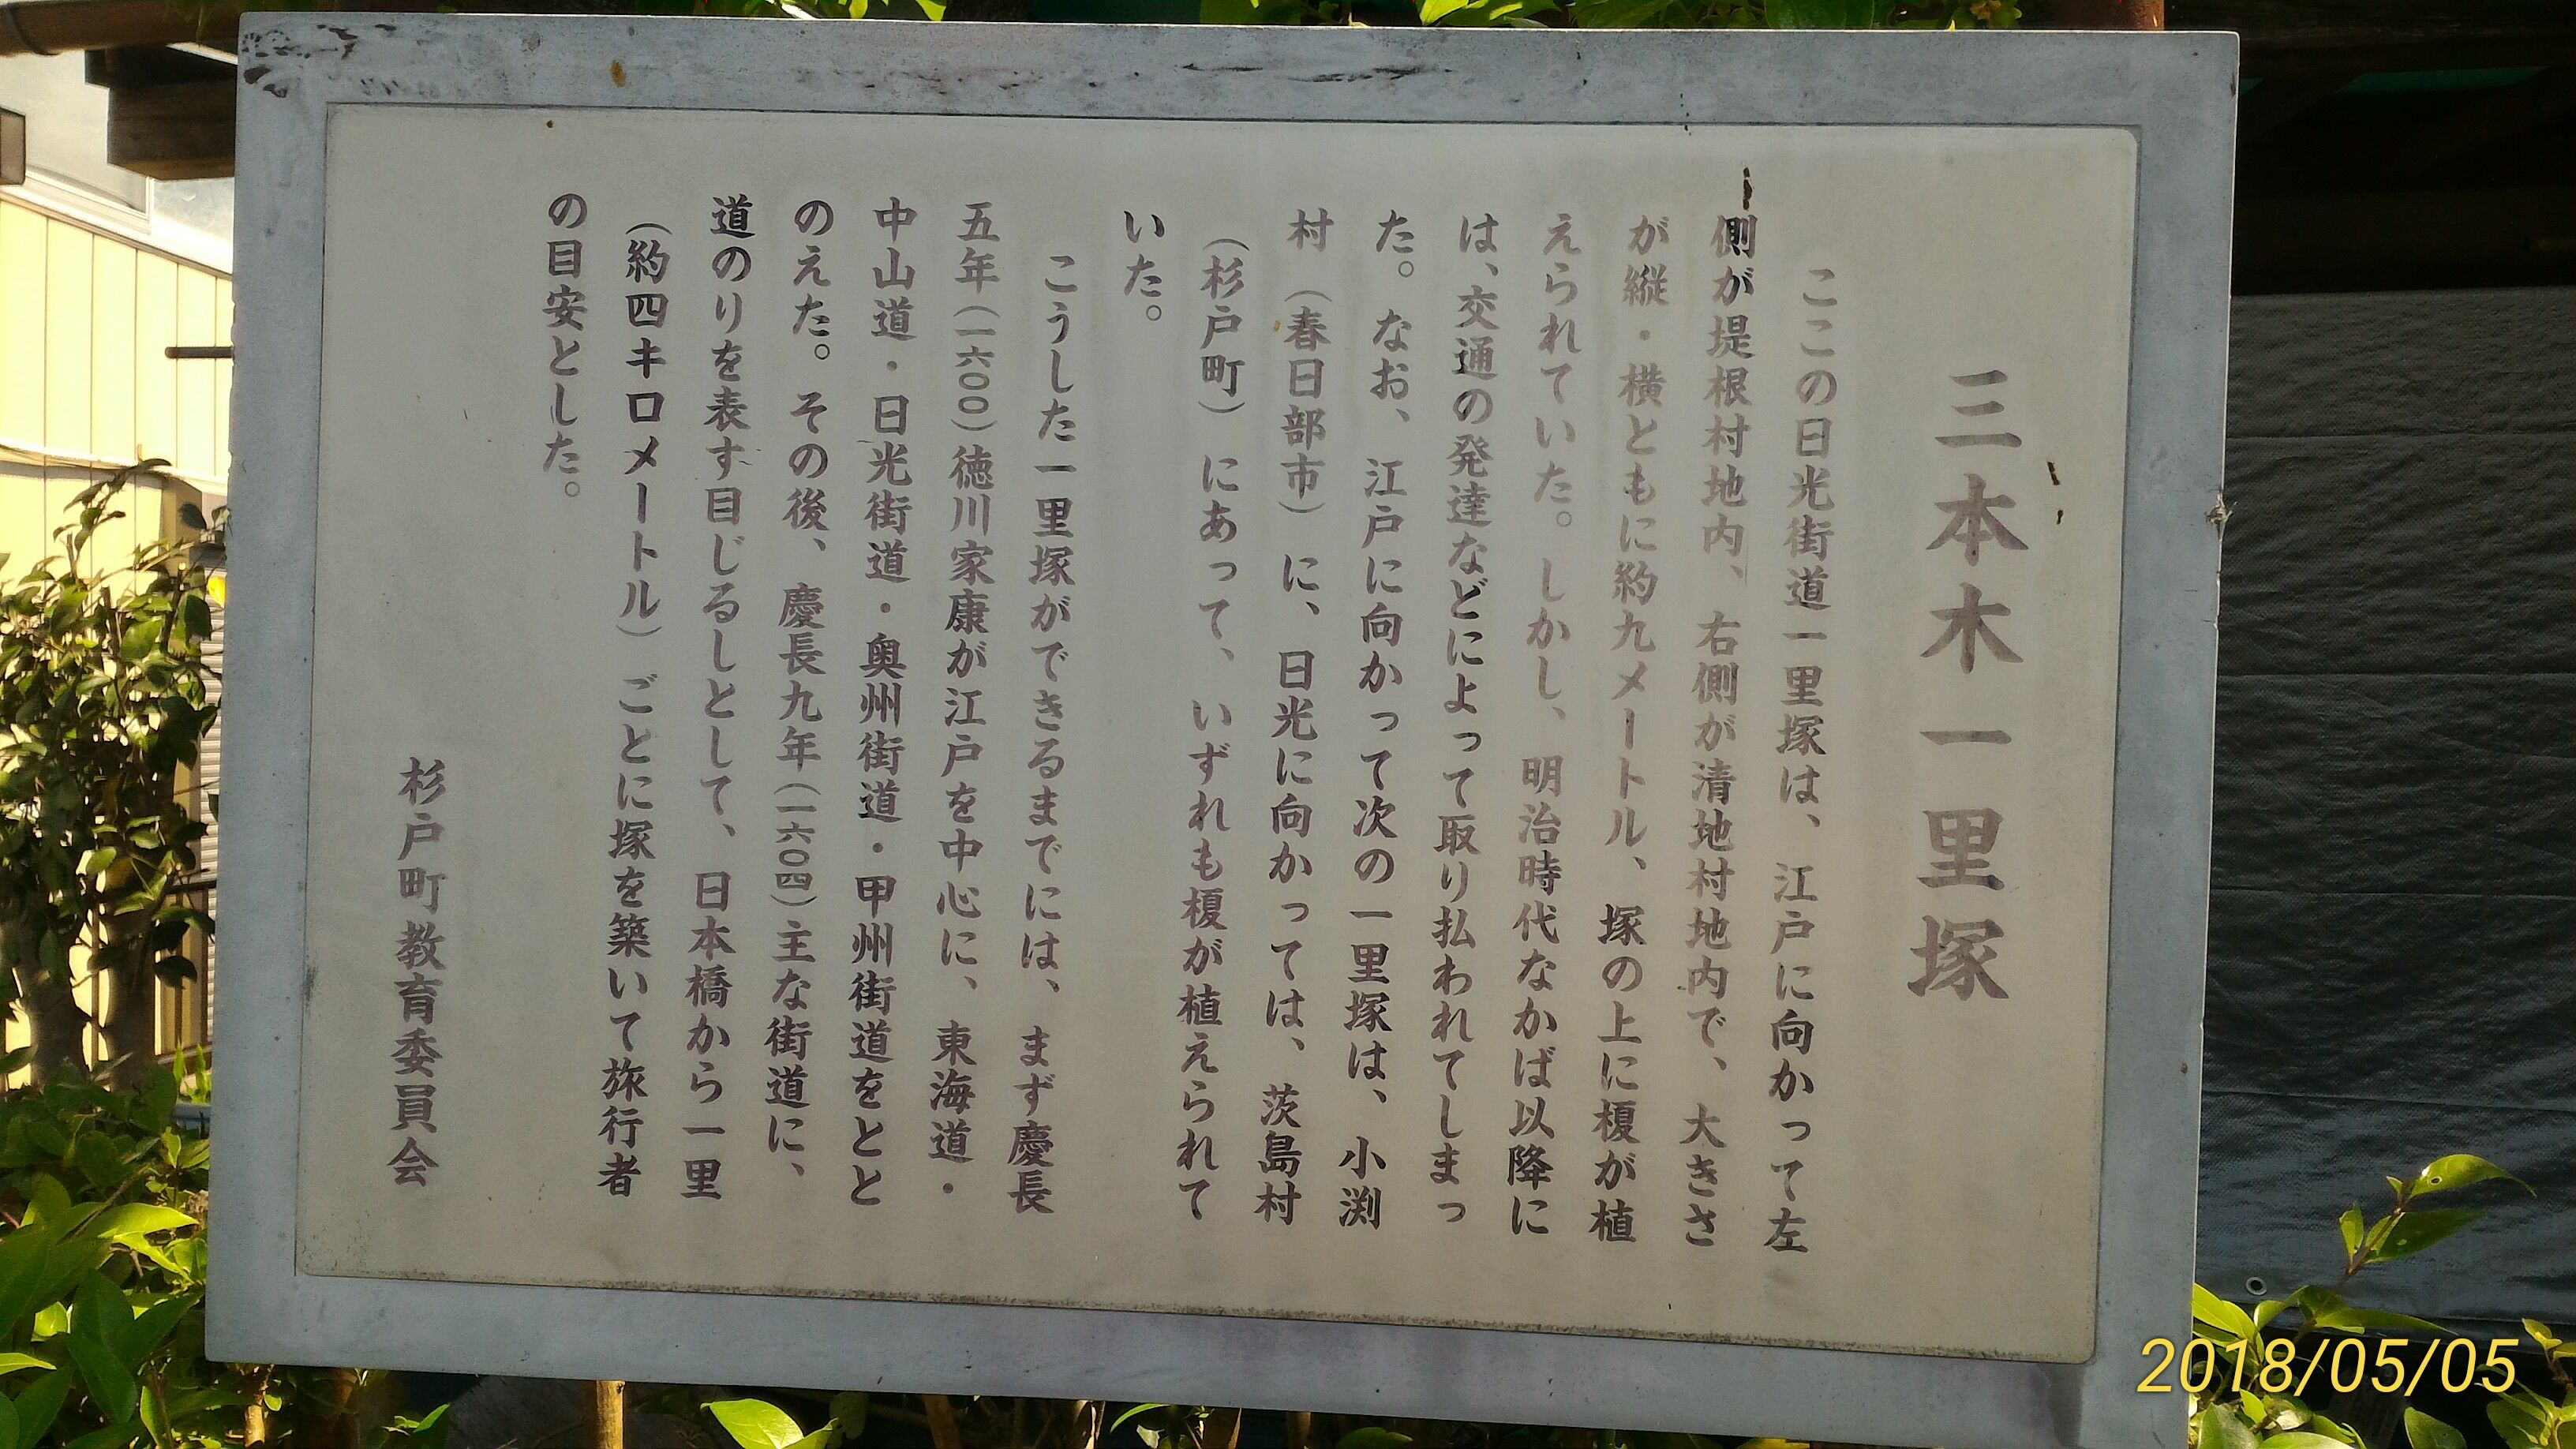 三本木一里塚
ここの日光街道一里塚は、江戸に向かって左
側が堤根村地内、右側が清地村地内で、大きさ
が縦・横ともに約九メートル、塚の上に榎が植
えられていた。しかし、明治時代なかば以降に
は、交通の発達などによって取り払われてしまっ
た。なお、江戸に向かって次の一里塚は、小渕
村（春日部市）に、日光に向かっては、茨島村
（杉戸町）にあって、いずれも榎が植えられて
いた。
こうした一里塚ができるまでには、まず慶長
五年（一六〇〇）徳川家康が江戸を中心に、東海道・
中山道・日光街道・奥州街道・甲州街道をとと
のえた。その後、慶長九年（一六〇四）主な街道に、
道のりを表す目じるしとして、日本橋から一里
（約四キロメートル）ごとに塚を築いて旅行者
の目安とした。
杉戸町教育委員会
2018/05/05